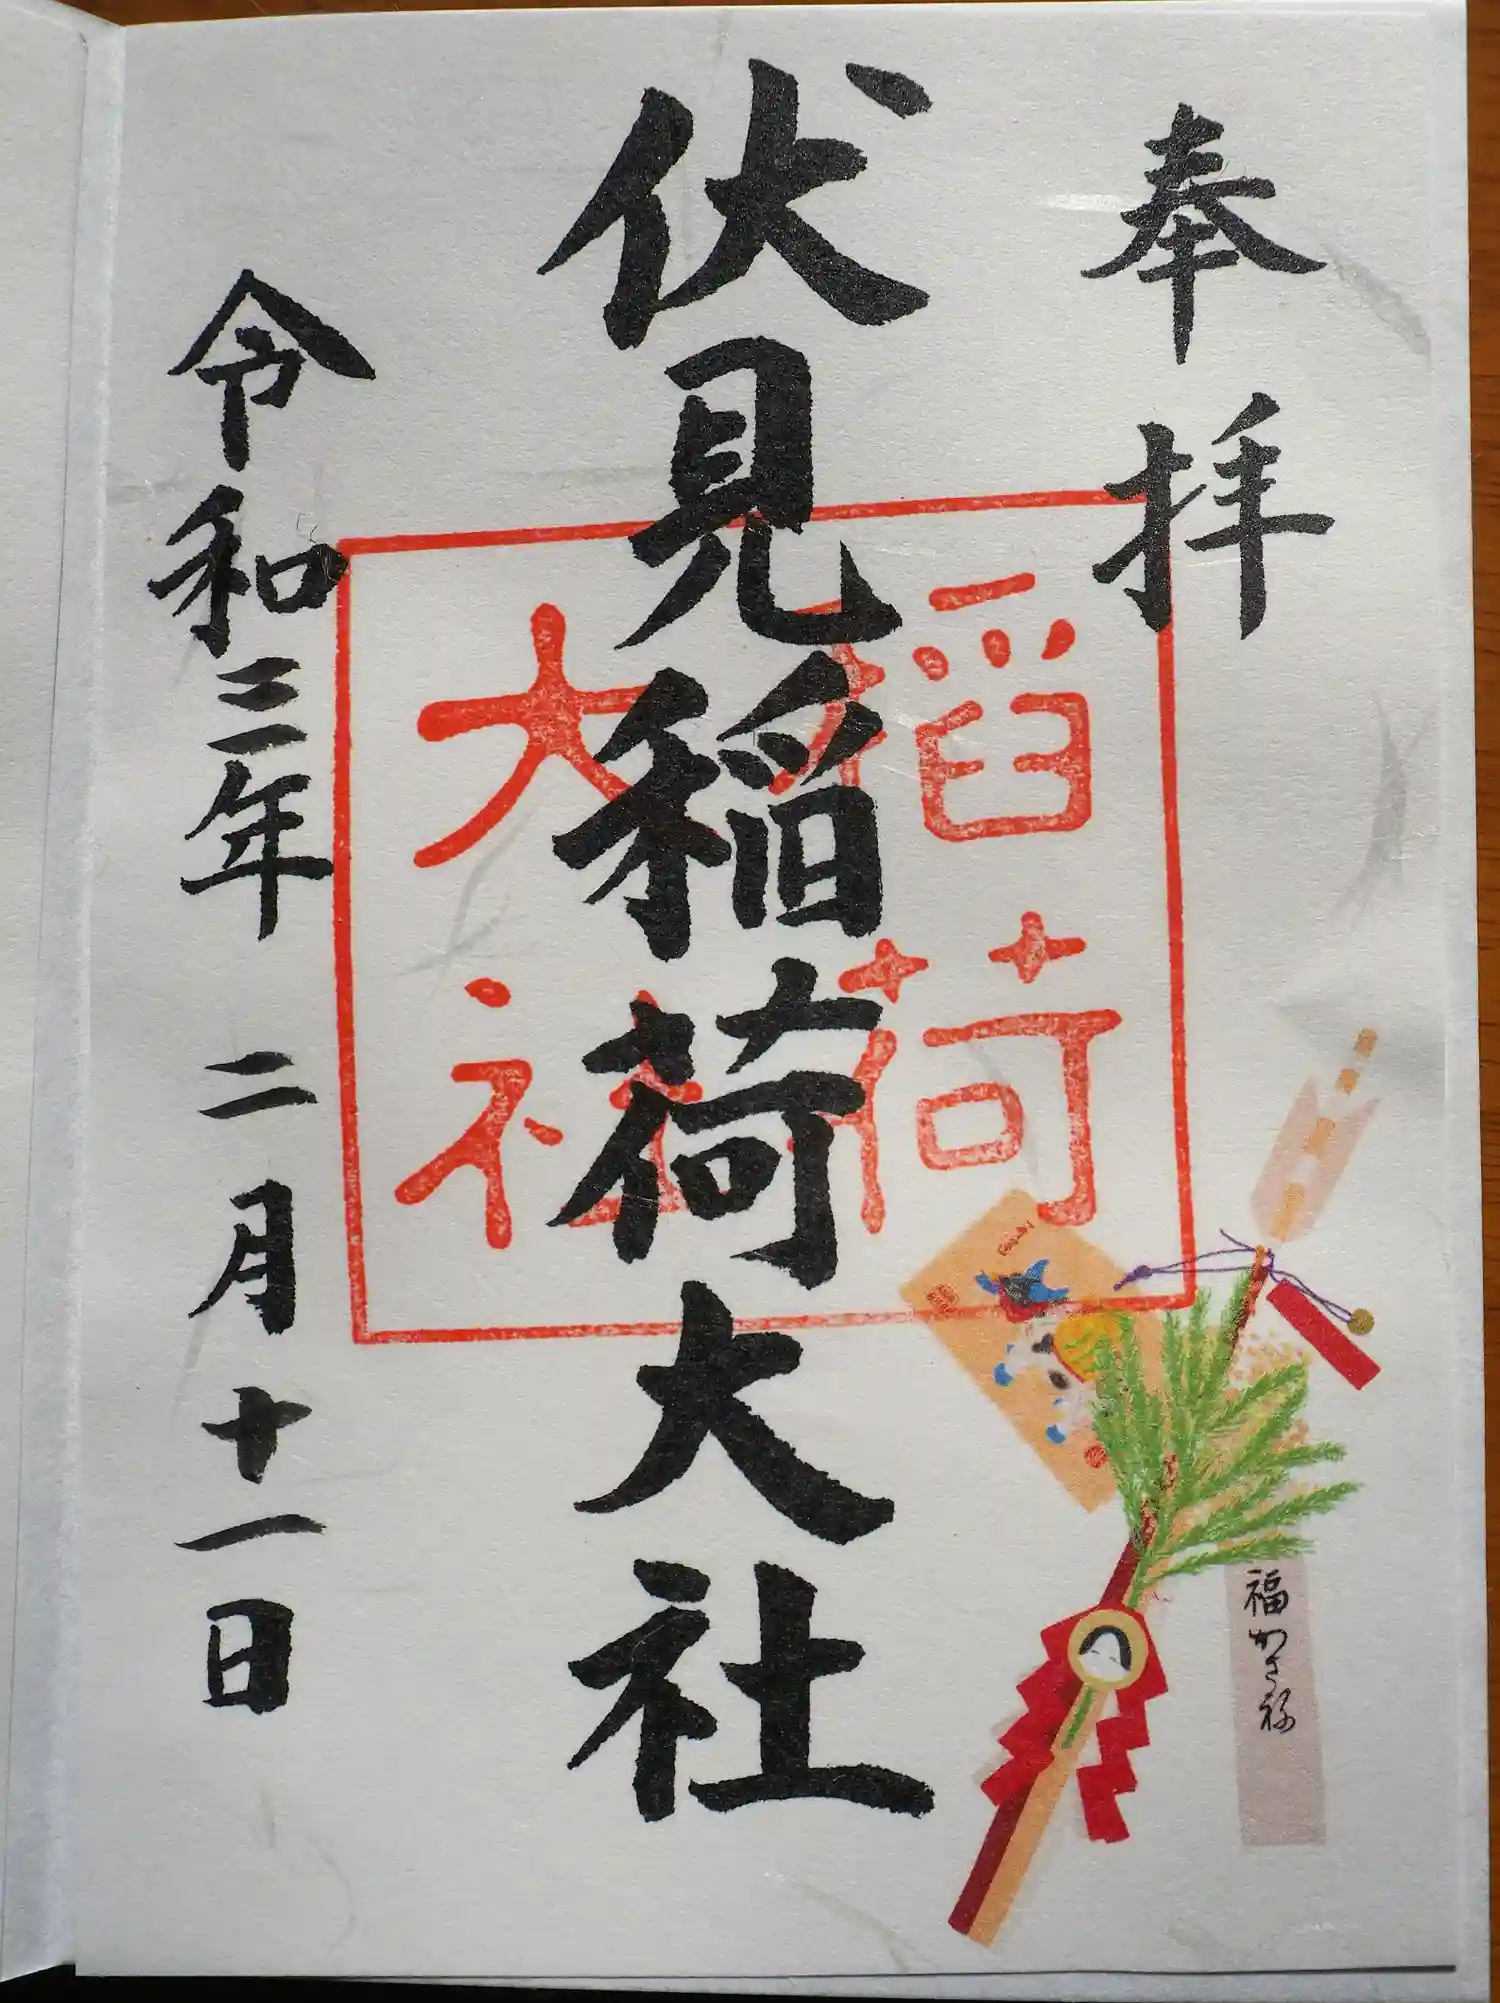 奉拝
伏見稲荷大社
稲荷
大社
令和三年 二月十一日
福かさね